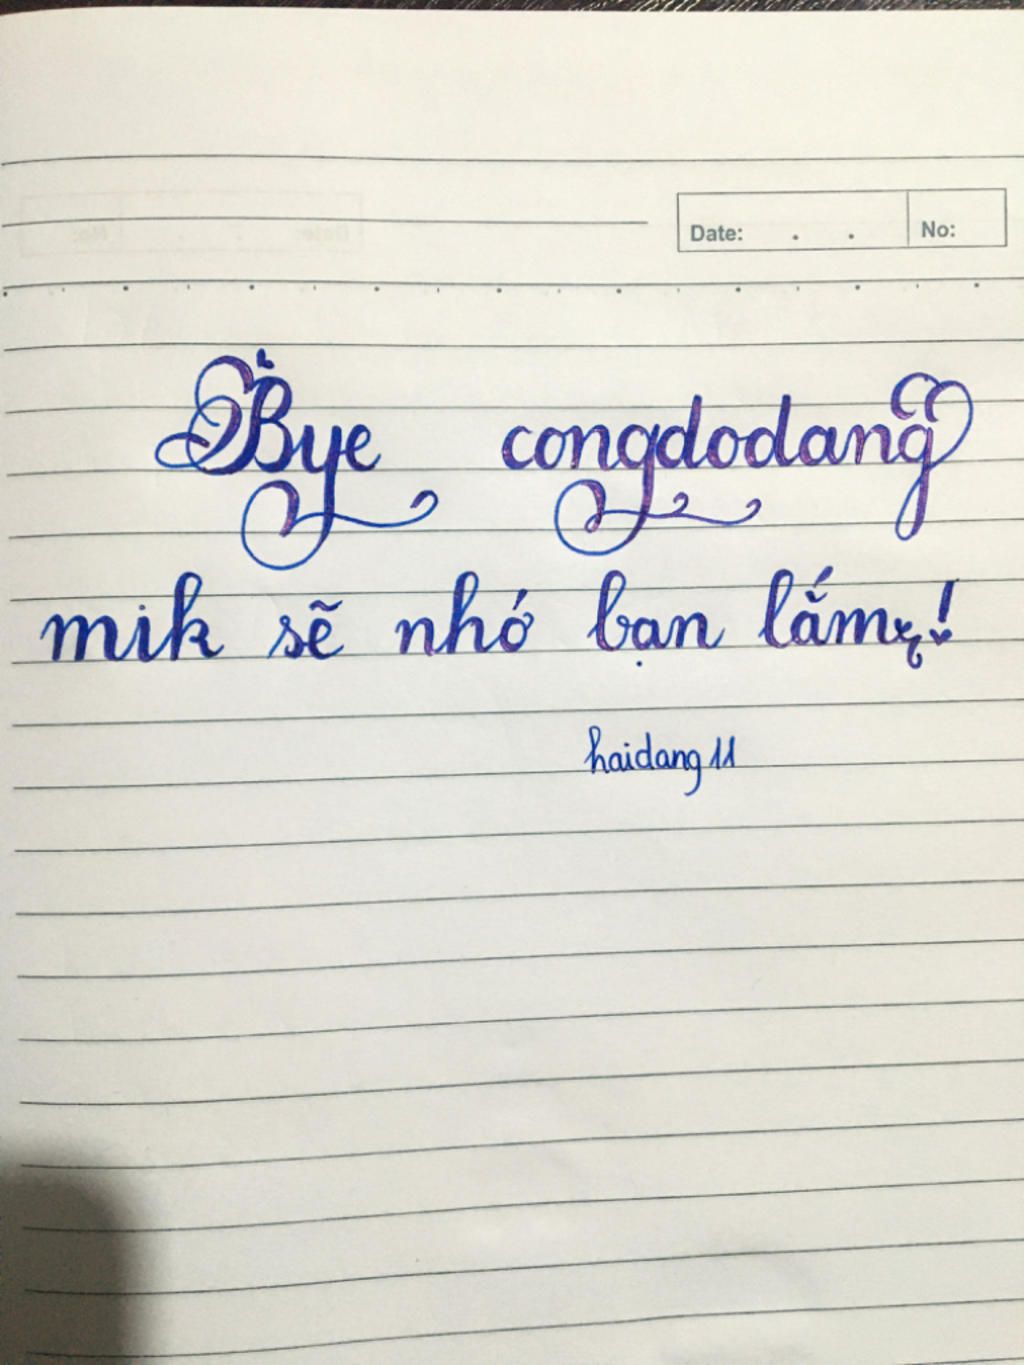 Date: . . No:
Bye congdodang
mik sẽ nhớ bạn lắm!
haidang 11